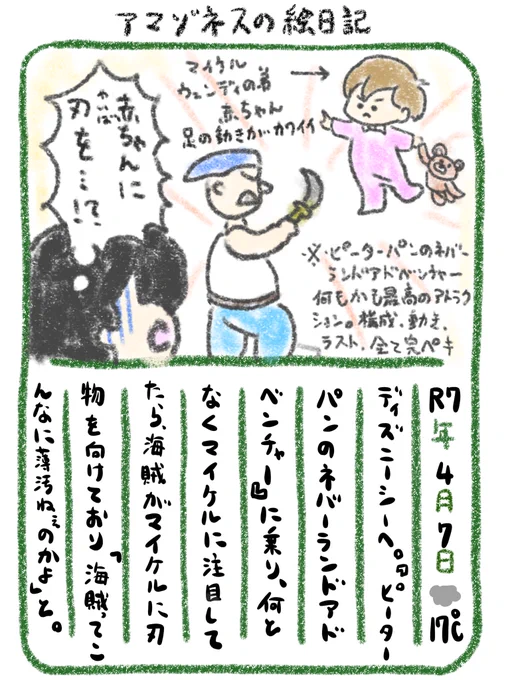 アマゾネスの絵日記
赤ちゃんに
刃を…!?
やいば
マイケル
ウェンディの弟
赤ちゃん
足の動きがカワイイ
※ピーターパンのネバー
ランドアドベンチャー
何もかも最高のアトラク
ション。構成、動き、
ラスト、全て完ペキ
R7年4月7日 17℃
ディズニーシーへ。『ピーター
パンのネバーランドアド
ベンチャー』に乗り、何と
なくマイケルに注目して
たら、海賊がマイケルに刃
物を向けており「海賊ってこ
んなに薄汚ねぇのかよ」と。